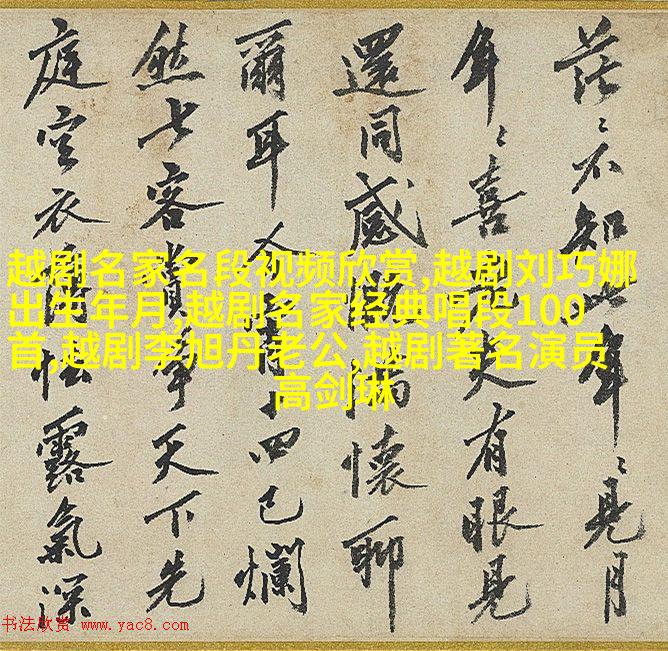 茫〻不知年〻見月
年〻喜有眼見
還同感懷聊
爾耳四已爛
然七客賞天下先
庭空衣松露氣深
越剧名家名段视频欣赏,越剧刘巧娜
出生年月,越剧名家经典唱段100
首,越剧李旭丹老公,越剧著名演员
高剑琳
书法欣赏 www.yac8.com